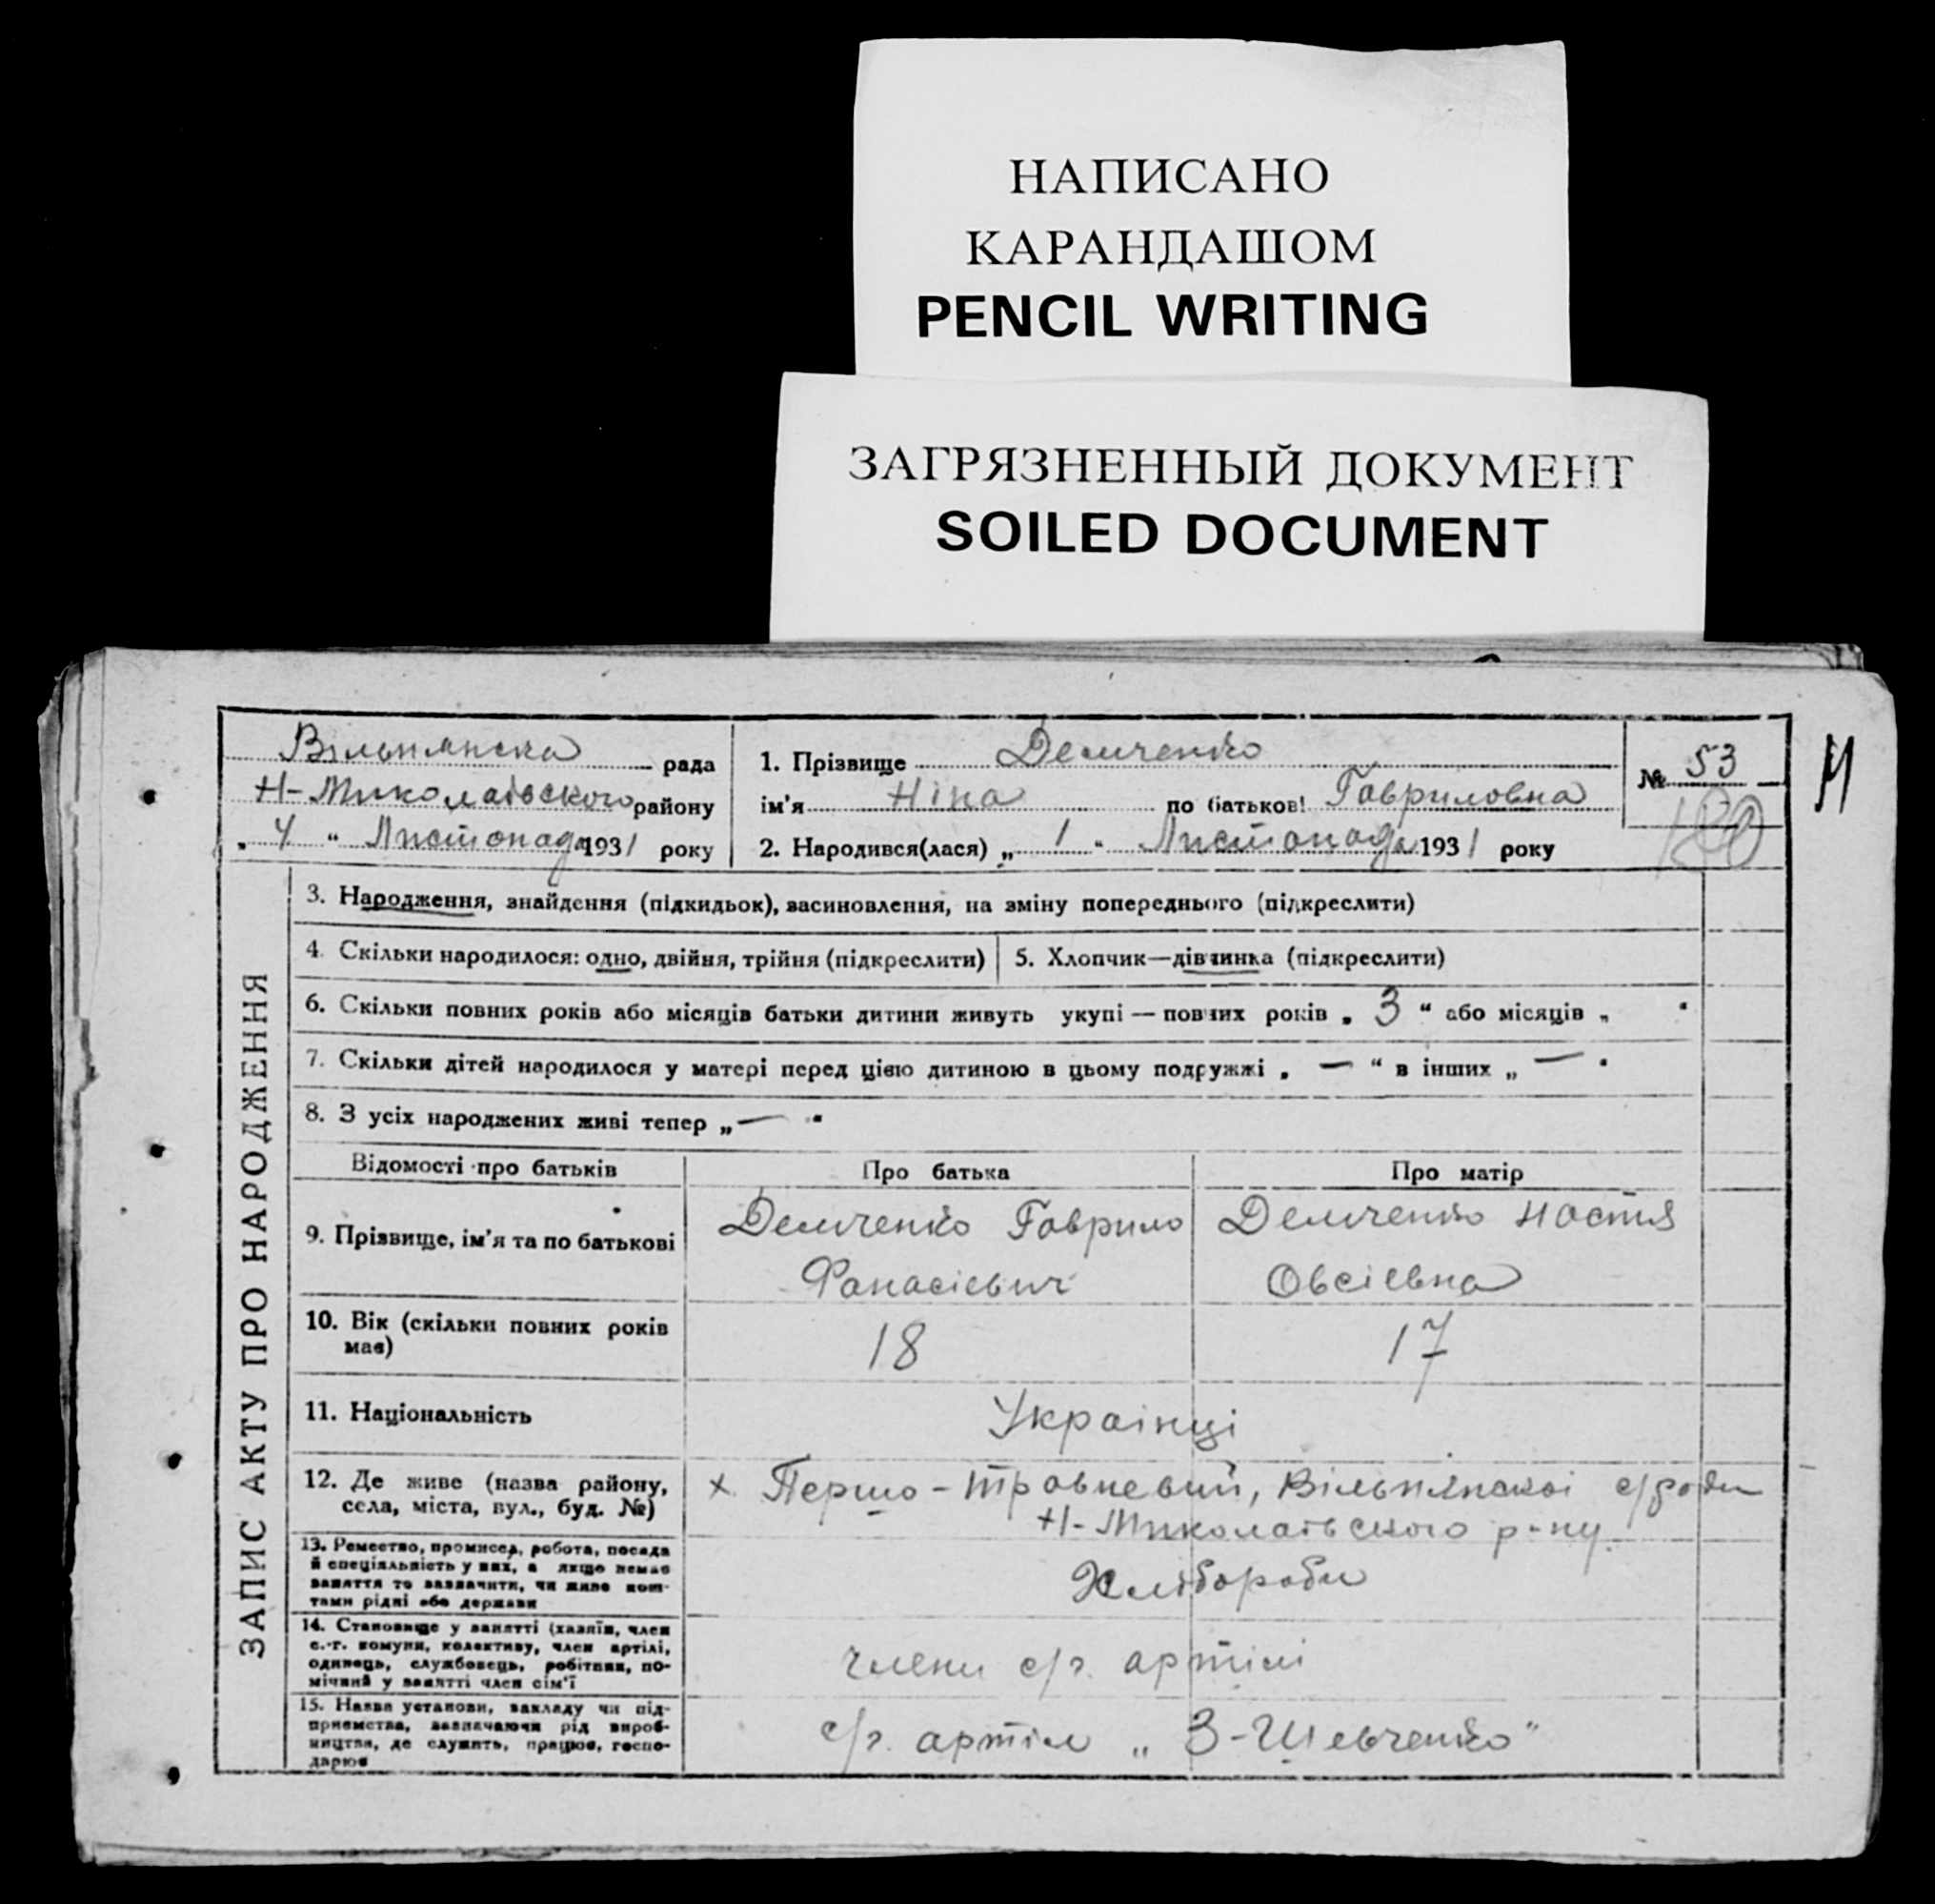 НАПИСАНО
КАРАНДАШОМ
PENCIL WRITING
ЗАГРЯЗНЕННЫЙ ДОКУМЕНТ
SOILED DOCUMENT
Вільнянска рада
Н-Миколаївского району
„ 4 “ Листопада 1931 року
1. Прізвище Демченко
ім'я Ніна по батькові Гавриловна
2. Народився(лася) „ 1 “ Листопада 1931 року
№ 53
180
ЗАПИС АКТУ ПРО НАРОДЖЕННЯ
3. Народження, знайдення (підкидьок), васиновлення, на зміну попереднього (підкреслити)
4. Скільки народилося: одно, двійня, трійня (підкреслити)
5. Хлопчик—дівчинка (підкреслити)
6. Скільки повних років або місяців батьки дитини живуть укупі — повних років „ 3 “ або місяців „ “
7. Скільки дітей народилося у матері перед цією дитиною в цьому подружжі „ — “ в інших „ — “
8. З усіх народжених живі тепер „ — “
Відомості про батьків Про батька Про матір
9. Прізвище, ім'я та по батькові
Демченко Гаврило
Фанасієвич
Демченко Настя
Овсіевна
10. Вік (скільки повних років має)
18
17
11. Національність
Українці
12. Де живе (назва району,
села, міста, вул., буд. №)
х. Першо-травневий, Вільнянскоі с/ради
Н-Миколаївського р-ну.
13. Ремество, промисел, робота, посада
й спеціяльність у них, а якщо немає
заняття то зазначити, чи живе кош-
тами рідні або держави
Хлібороби
14. Становище у занятті (хазяїн, член
с.-г. комуни, колективу, член артілі,
одинець, службовець, робітник, по-
мічний у занятті член сім'ї
члени с/г. артілі
15. Назва установи, закладу чи під-
приємства, зазначаючи рід вироб-
ництва, де служить, працює, госпо-
дарює
с/г. артіль „З-Шевченко"